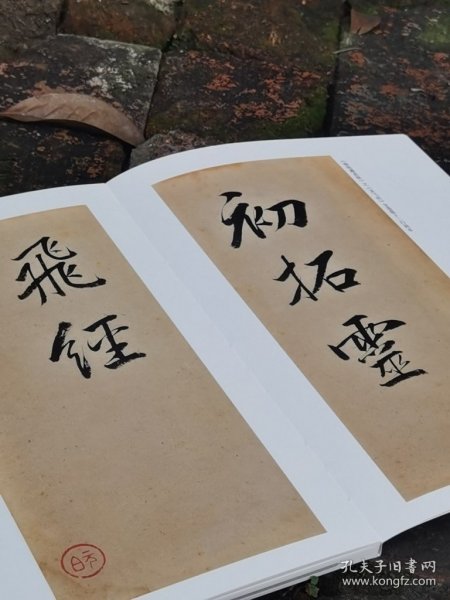 初拓靈
飛經
孔夫子旧书网
www.kongfz.com